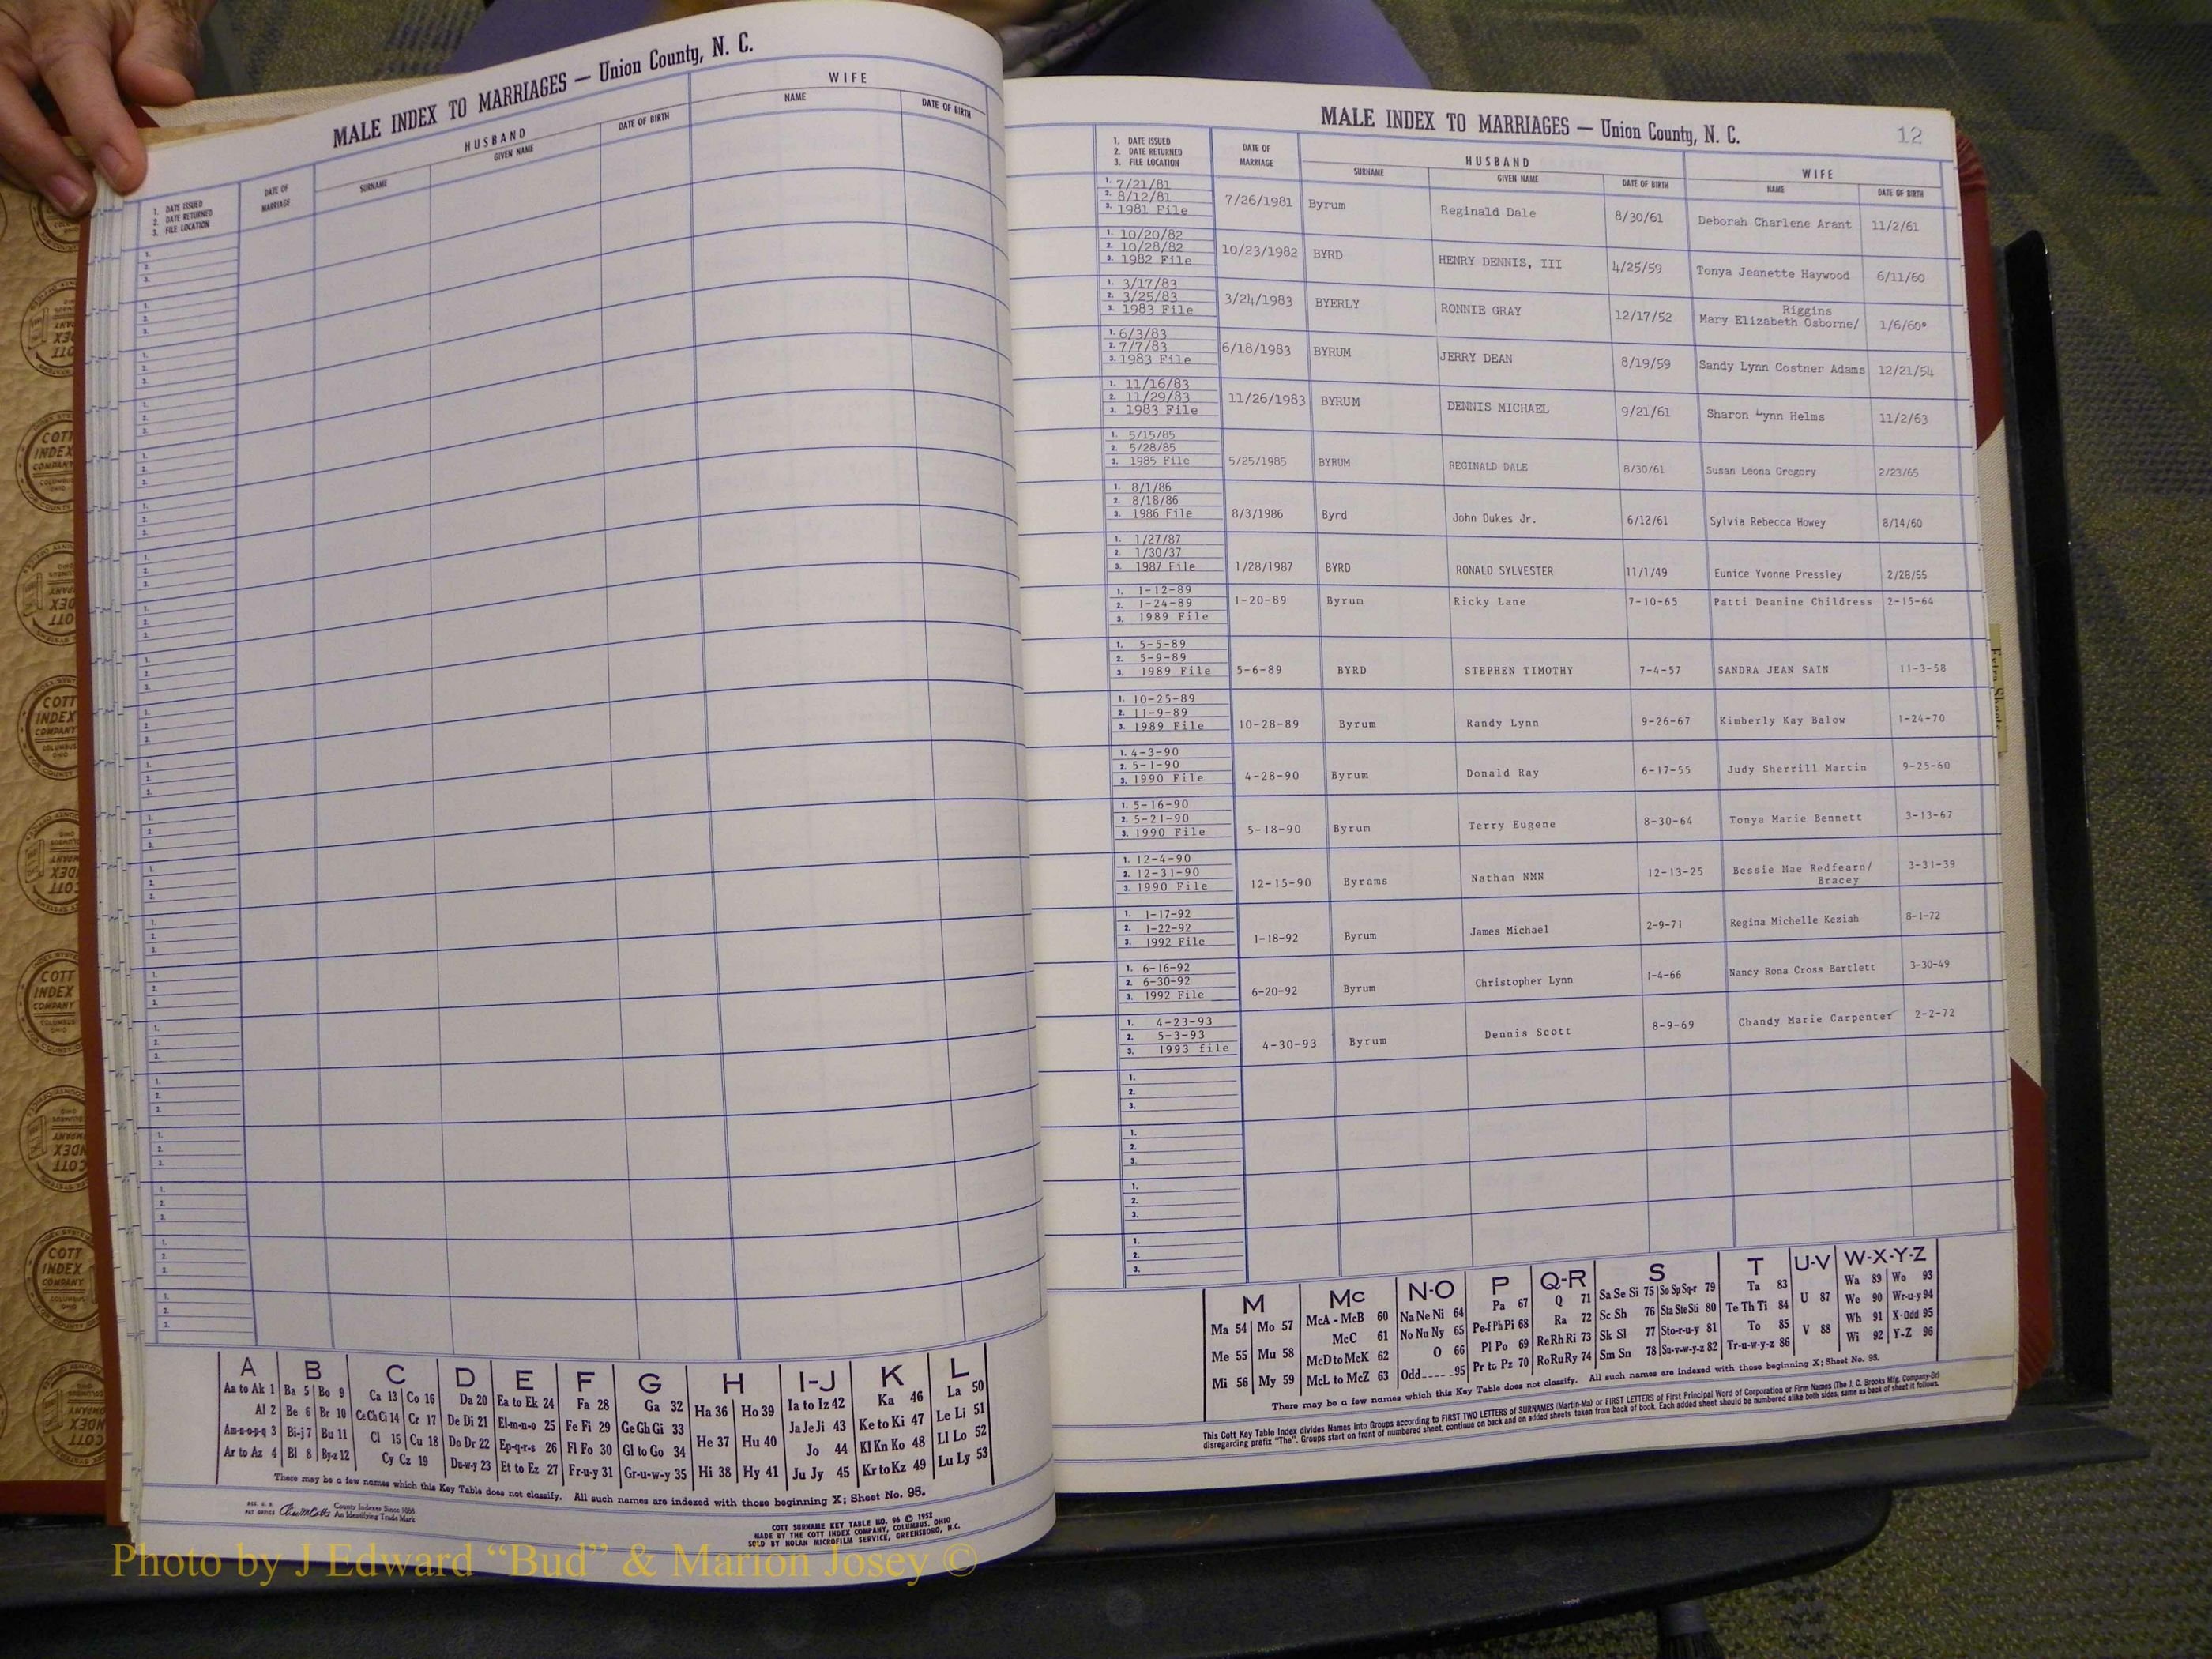 MALE INDEX TO MARRIAGES — Union County, N. C.
HUSBAND WIFE
1. DATE ISSUED
2. DATE RETURNED
3. FILE LOCATION
DATE OF MARRIAGE SURNAME GIVEN NAME DATE OF BIRTH NAME DATE OF BIRTH
A B C D E F G H I-J K L
Aa to Ak 1 Ba 5 Bo 9 Ca 13 Co 16 Da 20 Ea to Ek 24 Fa 28 Ga 32 Ha 36 Ho 39 Ia to Iz 42 Ka 46 La 50
Al 2 Be 6 Br 10 Ce Ch Ci 14 Cr 17 De Di 21 El-m-n-o 25 Fe Fi 29 Ge Gh Gi 33 He 37 Hu 40 Ja Je Ji 43 Ke to Ki 47 Le Li 51
Am-n-o-p-q 3 Bi-j 7 Bu 11 Cl 15 Cu 18 Do Dr 22 Ep-q-r-s 26 Fl Fo 30 Gl to Go 34 Hi 38 Hy 41 Jo 44 Kl Kn Ko 48 Ll Lo 52
Ar to Az 4 Bl 8 By-z 12 Cy Cz 19 Du-w-y 23 Et to Ez 27 Fr-u-y 31 Gr-u-w-y 35 Ju Jy 45 Kr to Kz 49 Lu Ly 53
There may be a few names which this Key Table does not classify. All such names are indexed with those beginning X; Sheet No. 95.
County Indexes Since 1888
An Identifying Trade Mark
COTT SURNAME KEY TABLE NO. 96 © 1952
MADE BY THE COTT INDEX COMPANY, COLUMBUS, OHIO
SOLD BY NOLAN MICROFILM SERVICE, GREENSBORO, N.C.
Photo by J Edward “Bud” & Marion Josey ©
MALE INDEX TO MARRIAGES — Union County, N. C. 12
1. DATE ISSUED
2. DATE RETURNED
3. FILE LOCATION
DATE OF MARRIAGE
HUSBAND WIFE
SURNAME GIVEN NAME DATE OF BIRTH NAME DATE OF BIRTH
1. 7/21/81
2. 8/12/81
3. 1981 File 7/26/1981 Byrum Reginald Dale 8/30/61 Deborah Charlene Arant 11/2/61
1. 10/20/82
2. 10/28/82
3. 1982 File 10/23/1982 BYRD HENRY DENNIS, III 4/25/59 Tonya Jeanette Haywood 6/11/60
1. 3/17/83
2. 3/25/83
3. 1983 File 3/24/1983 BYERLY RONNIE GRAY 12/17/52 Mary Elizabeth Osborne/ Riggins 1/6/60
1. 6/3/83
2. 7/7/83
3. 1983 File 6/18/1983 BYRUM JERRY DEAN 8/19/59 Sandy Lynn Costner Adams 12/21/54
1. 11/16/83
2. 11/29/83
3. 1983 File 11/26/1983 BYRUM DENNIS MICHAEL 9/21/61 Sharon Lynn Helms 11/2/63
1. 5/15/85
2. 5/28/85
3. 1985 File 5/25/1985 BYRUM REGINALD DALE 8/30/61 Susan Leona Gregory 2/23/65
1. 8/1/86
2. 8/18/86
3. 1986 File 8/3/1986 Byrd John Dukes Jr. 6/12/61 Sylvia Rebecca Howey 8/14/60
1. 1/27/87
2. 1/30/37
3. 1987 File 1/28/1987 BYRD RONALD SYLVESTER 11/1/49 Eunice Yvonne Pressley 2/28/55
1. 1-12-89
2. 1-24-89
3. 1989 File 1-20-89 Byrum Ricky Lane 7-10-65 Patti Deanine Childress 2-15-64
1. 5-5-89
2. 5-9-89
3. 1989 File 5-6-89 BYRD STEPHEN TIMOTHY 7-4-57 SANDRA JEAN SAIN 11-3-58
1. 10-25-89
2. 11-9-89
3. 1989 File 10-28-89 Byrum Randy Lynn 9-26-67 Kimberly Kay Balow 1-24-70
1. 4-3-90
2. 5-1-90
3. 1990 File 4-28-90 Byrum Donald Ray 6-17-55 Judy Sherrill Martin 9-25-60
1. 5-16-90
2. 5-21-90
3. 1990 File 5-18-90 Byrum Terry Eugene 8-30-64 Tonya Marie Bennett 3-13-67
1. 12-4-90
2. 12-31-90
3. 1990 File 12-15-90 Byrams Nathan NMN 12-13-25 Bessie Mae Redfearn/ Bracey 3-31-39
1. 1-17-92
2. 1-22-92
3. 1992 File 1-18-92 Byrum James Michael 2-9-71 Regina Michelle Keziah 8-1-72
1. 6-16-92
2. 6-30-92
3. 1992 File 6-20-92 Byrum Christopher Lynn 1-4-66 Nancy Rona Cross Bartlett 3-30-49
1. 4-23-93
2. 5-3-93
3. 1993 file 4-30-93 Byrum Dennis Scott 8-9-69 Chandy Marie Carpenter 2-2-72
M Mc N-O P Q-R S T U-V W-X-Y-Z
Ma 54 Mo 57 McA - McB 60 Na Ne Ni 64 Pa 67 Q 71 Sa Se Si 75 So Sp Sq-r 79 Ta 83 U 87 Wa 89 Wo 93
Me 55 Mu 58 McC 61 No Nu Ny 65 Pe-f Ph Pi 68 Ra 72 Sc Sh 76 Sta Ste Sti 80 Te Th Ti 84 V 88 We 90 Wr-u-y 94
Mi 56 My 59 McD to McK 62 O 66 Pl Po 69 Re Rh Ri 73 Sk Sl 77 Sto-r-u-y 81 To 85 Wh 91 X-Odd 95
McL to McZ 63 Odd 95 Pr to Pz 70 Ro Ru Ry 74 Sm Sn 78 Su-v-w-y-z 82 Tr-u-w-y-z 86 Wi 92 Y-Z 96
There may be a few names which this Key Table does not classify. All such names are indexed with those beginning X; Sheet No. 95.
This Cott Key Table Index divides Names into Groups according to FIRST TWO LETTERS of SURNAMES (Martin-Ma) or FIRST LETTERS of First Principal Word of Corporation or Firm Names (The J. C. Brooks Mfg. Company-Br)
disregarding prefix "The". Groups start on front of numbered sheet, continue on back and on added sheets taken from back of book. Each added sheet should be numbered alike both sides, same as back of sheet it follows.
COTT
INDEX
COMPANY
COLUMBUS
OHIO
Extra Sheets